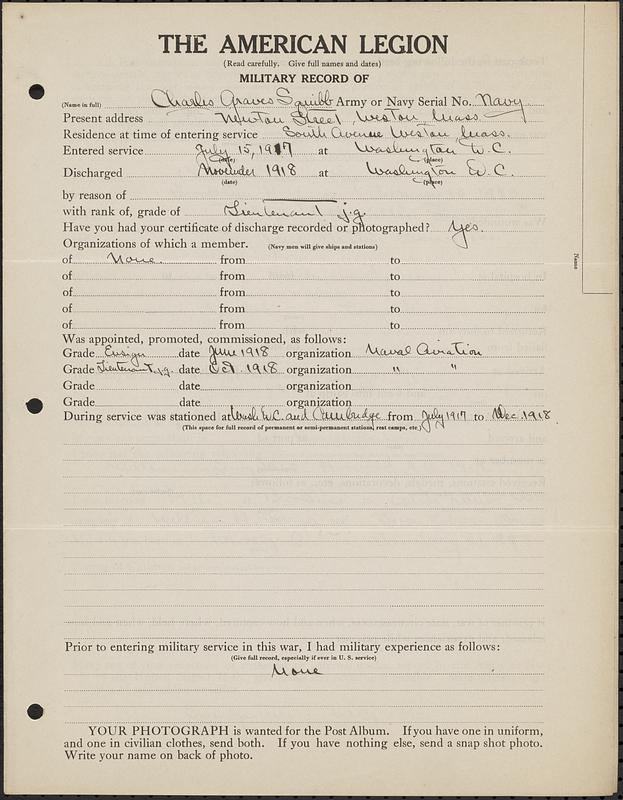 THE AMERICAN LEGION
(Read carefully. Give full names and dates)
MILITARY RECORD OF
(Name in full) Charles Graves Squibb Army or Navy Serial No. Navy
Present address Newton Street, Weston, Mass.
Residence at time of entering service South Avenue Weston, Mass.
Entered service July 15, 1917 at Washington D.C.
(date) (place)
Discharged November 1918 at Washington D.C.
(date) (place)
by reason of
with rank of, grade of Lieutenant j.g.
Have you had your certificate of discharge recorded or photographed? Yes.
Organizations of which a member. (Navy men will give ships and stations)
of None. from to
of from to
of from to
of from to
of from to
Name
Was appointed, promoted, commissioned, as follows:
Grade Ensign date June 1918 organization Naval Aviation
Grade Lieutenant j.g. date Oct. 1918 organization " "
Grade date organization
Grade date organization
During service was stationed at Wash. D.C. and Cambridge from July 1917 to Dec. 1918
(This space for full record of permanent or semi-permanent stations, rest camps, etc.)
Prior to entering military service in this war, I had military experience as follows:
(Give full record, especially if ever in U. S. service)
None
YOUR PHOTOGRAPH is wanted for the Post Album. If you have one in uniform,
and one in civilian clothes, send both. If you have nothing else, send a snap shot photo.
Write your name on back of photo.